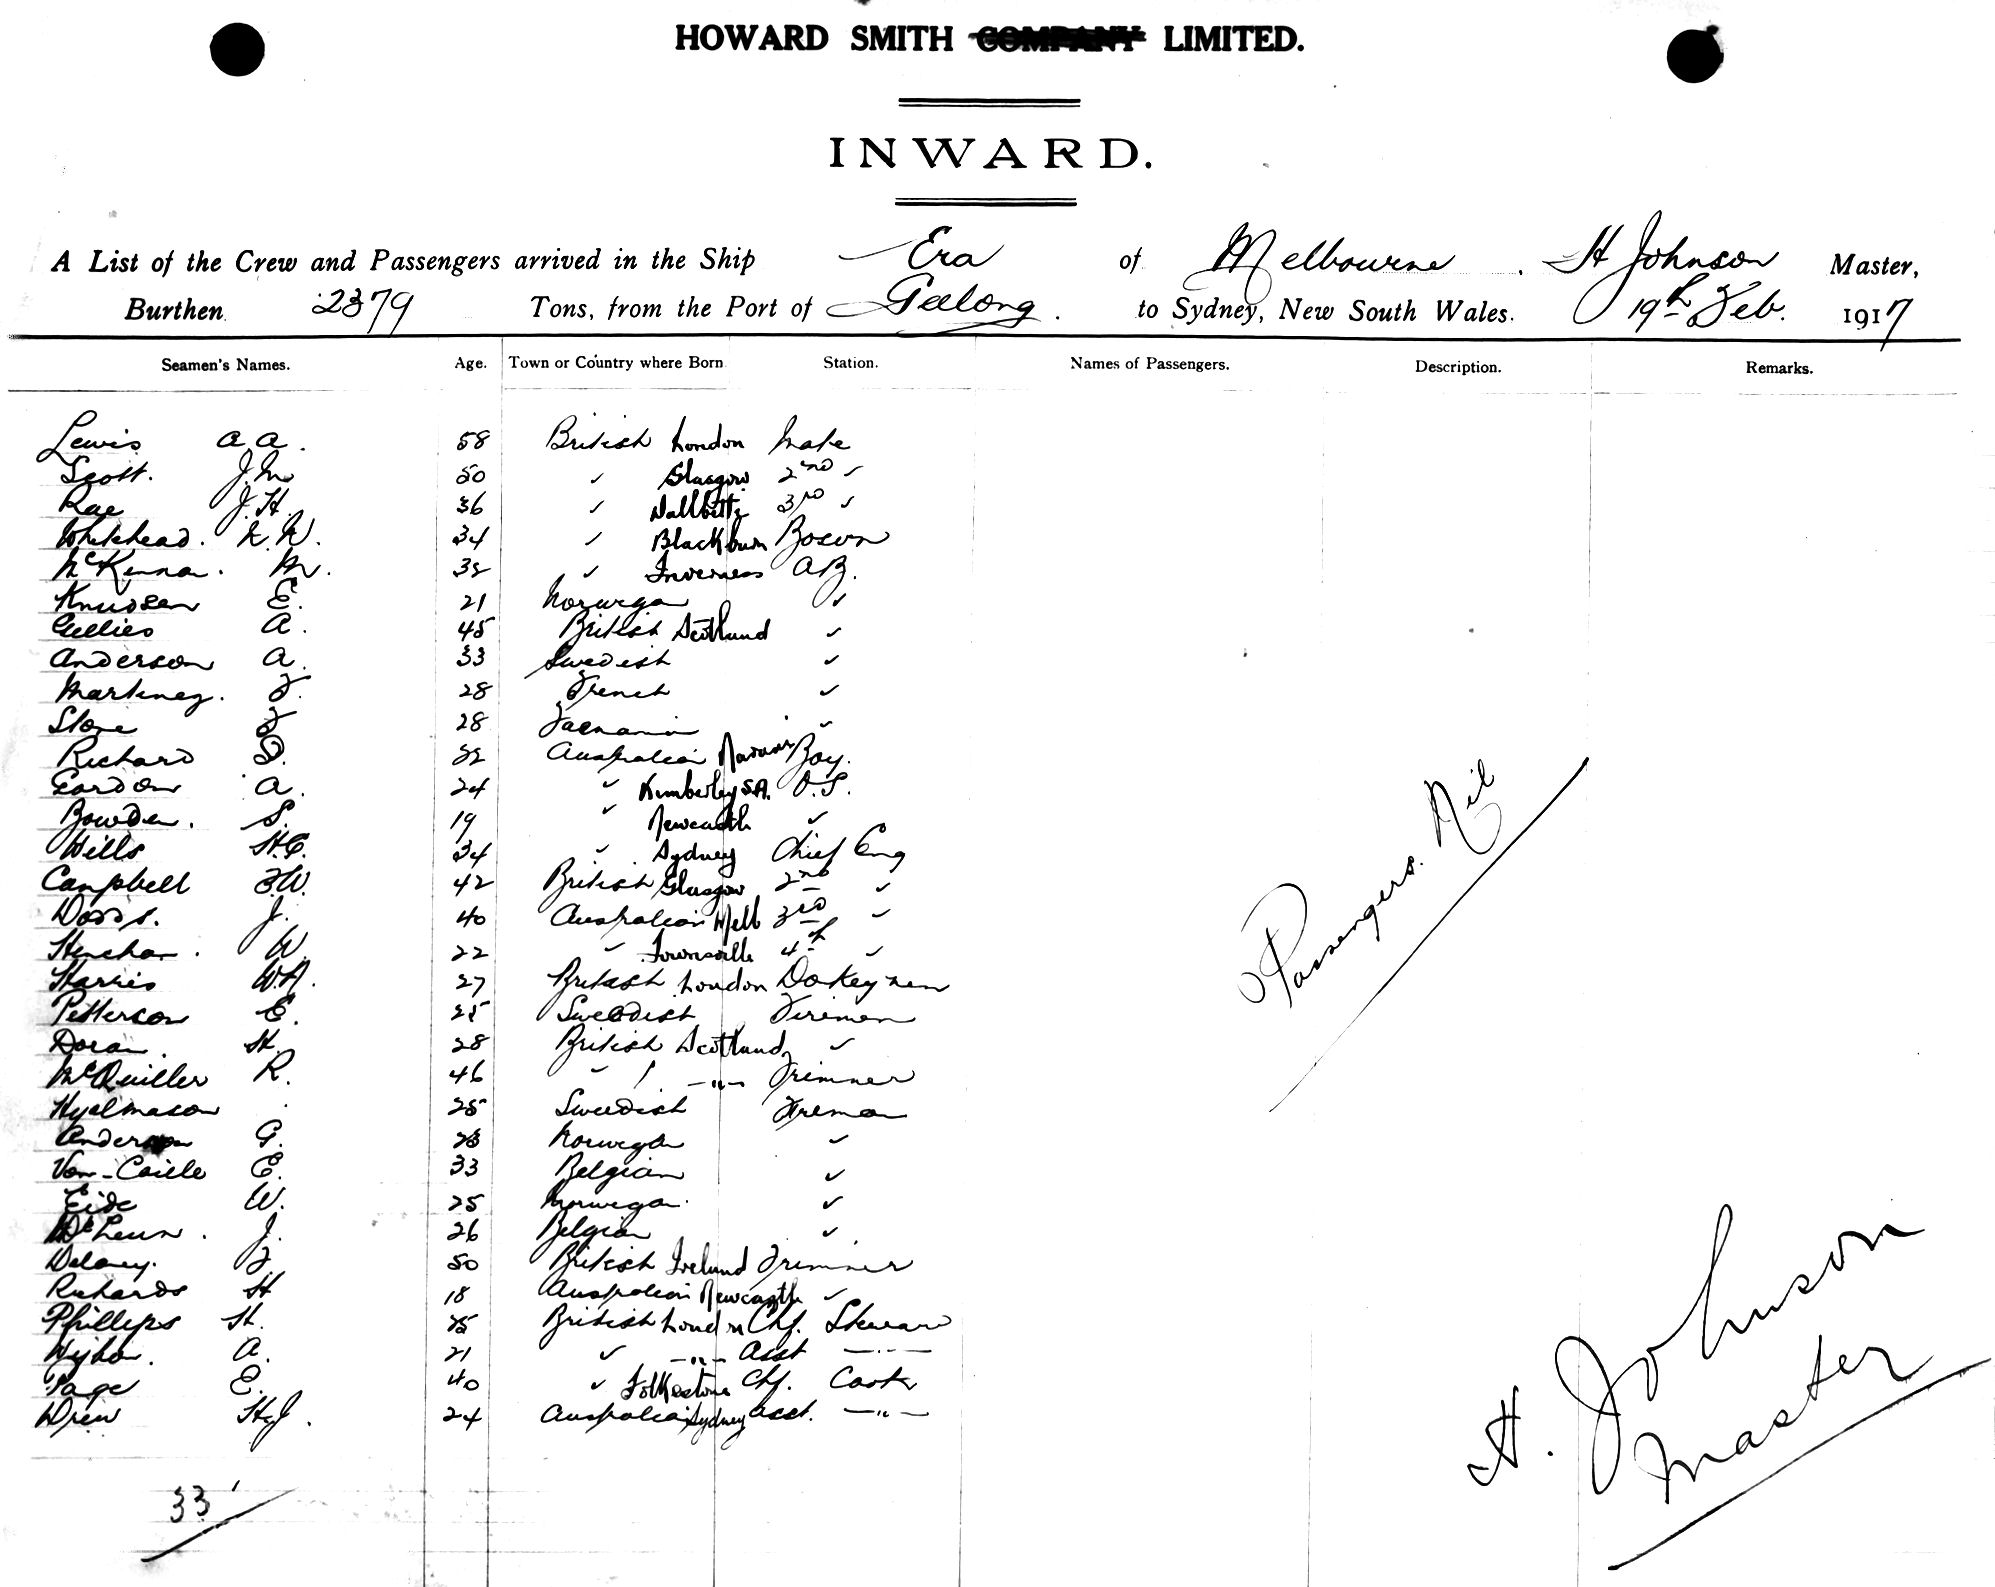 HOWARD SMITH COMPANY LIMITED.
INWARD.
A List of the Crew and Passengers arrived in the Ship Era of Melbourne. H Johnson Master,
Burthen 2379 Tons, from the Port of Geelong. to Sydney, New South Wales. 19th Feb. 1917
Seamen's Names. Age. Town or Country where Born Station. Names of Passengers. Description. Remarks.
Lewis A A. 58 British London Mate
Scott. J. M 50 " Glasgow 2nd "
Rae J. H. 36 " 3rd "
Whitehead. W. 34 " Blackburn Bosun
McKinnon. M. 32 " Inverness A.B.
Knudsen E. 21 Norwegan "
Gillies A. 45 British Scotland "
Anderson A. 33 Swedish "
Martinez. F. 28 French "
Stone F 28 Tasmania "
Richard D. 22 Australian Boy.
Gordon A. 24 " Kimberley S.A. O.S.
Bowden. S. 19 " Newcastle "
Wills H.C. 34 " Sydney Chief Eng
Campbell F.W. 42 British Glasgow 2nd "
Dodds. J. 40 Australian Melb 3rd "
Henehan. W. 22 " Townsville 4th "
Harris W.A. 27 British London Donkeyman
Petterson E. 25 Swedish Fireman
Doran. H. 28 British Scotland "
McQuiller R. 46 " " Trimmer
Hyalmason 25 Swedish Fireman
Anderson G. Norwegan "
Van-Caille E. 33 Belgian "
Eide W. 25 Norwegan. "
J. 26 Belgian "
Delaney. F 50 British Ireland Trimmer
Richards H 18 Australian Newcastle "
Phillips H. British London Chf. Steward
A. 21 " " Asst "
Page E. 40 " Folkestone Chf. Cook
Drew H.J. 24 Australian Sydney Asst. "
33
Passengers. Nil
H. Johnson
Master